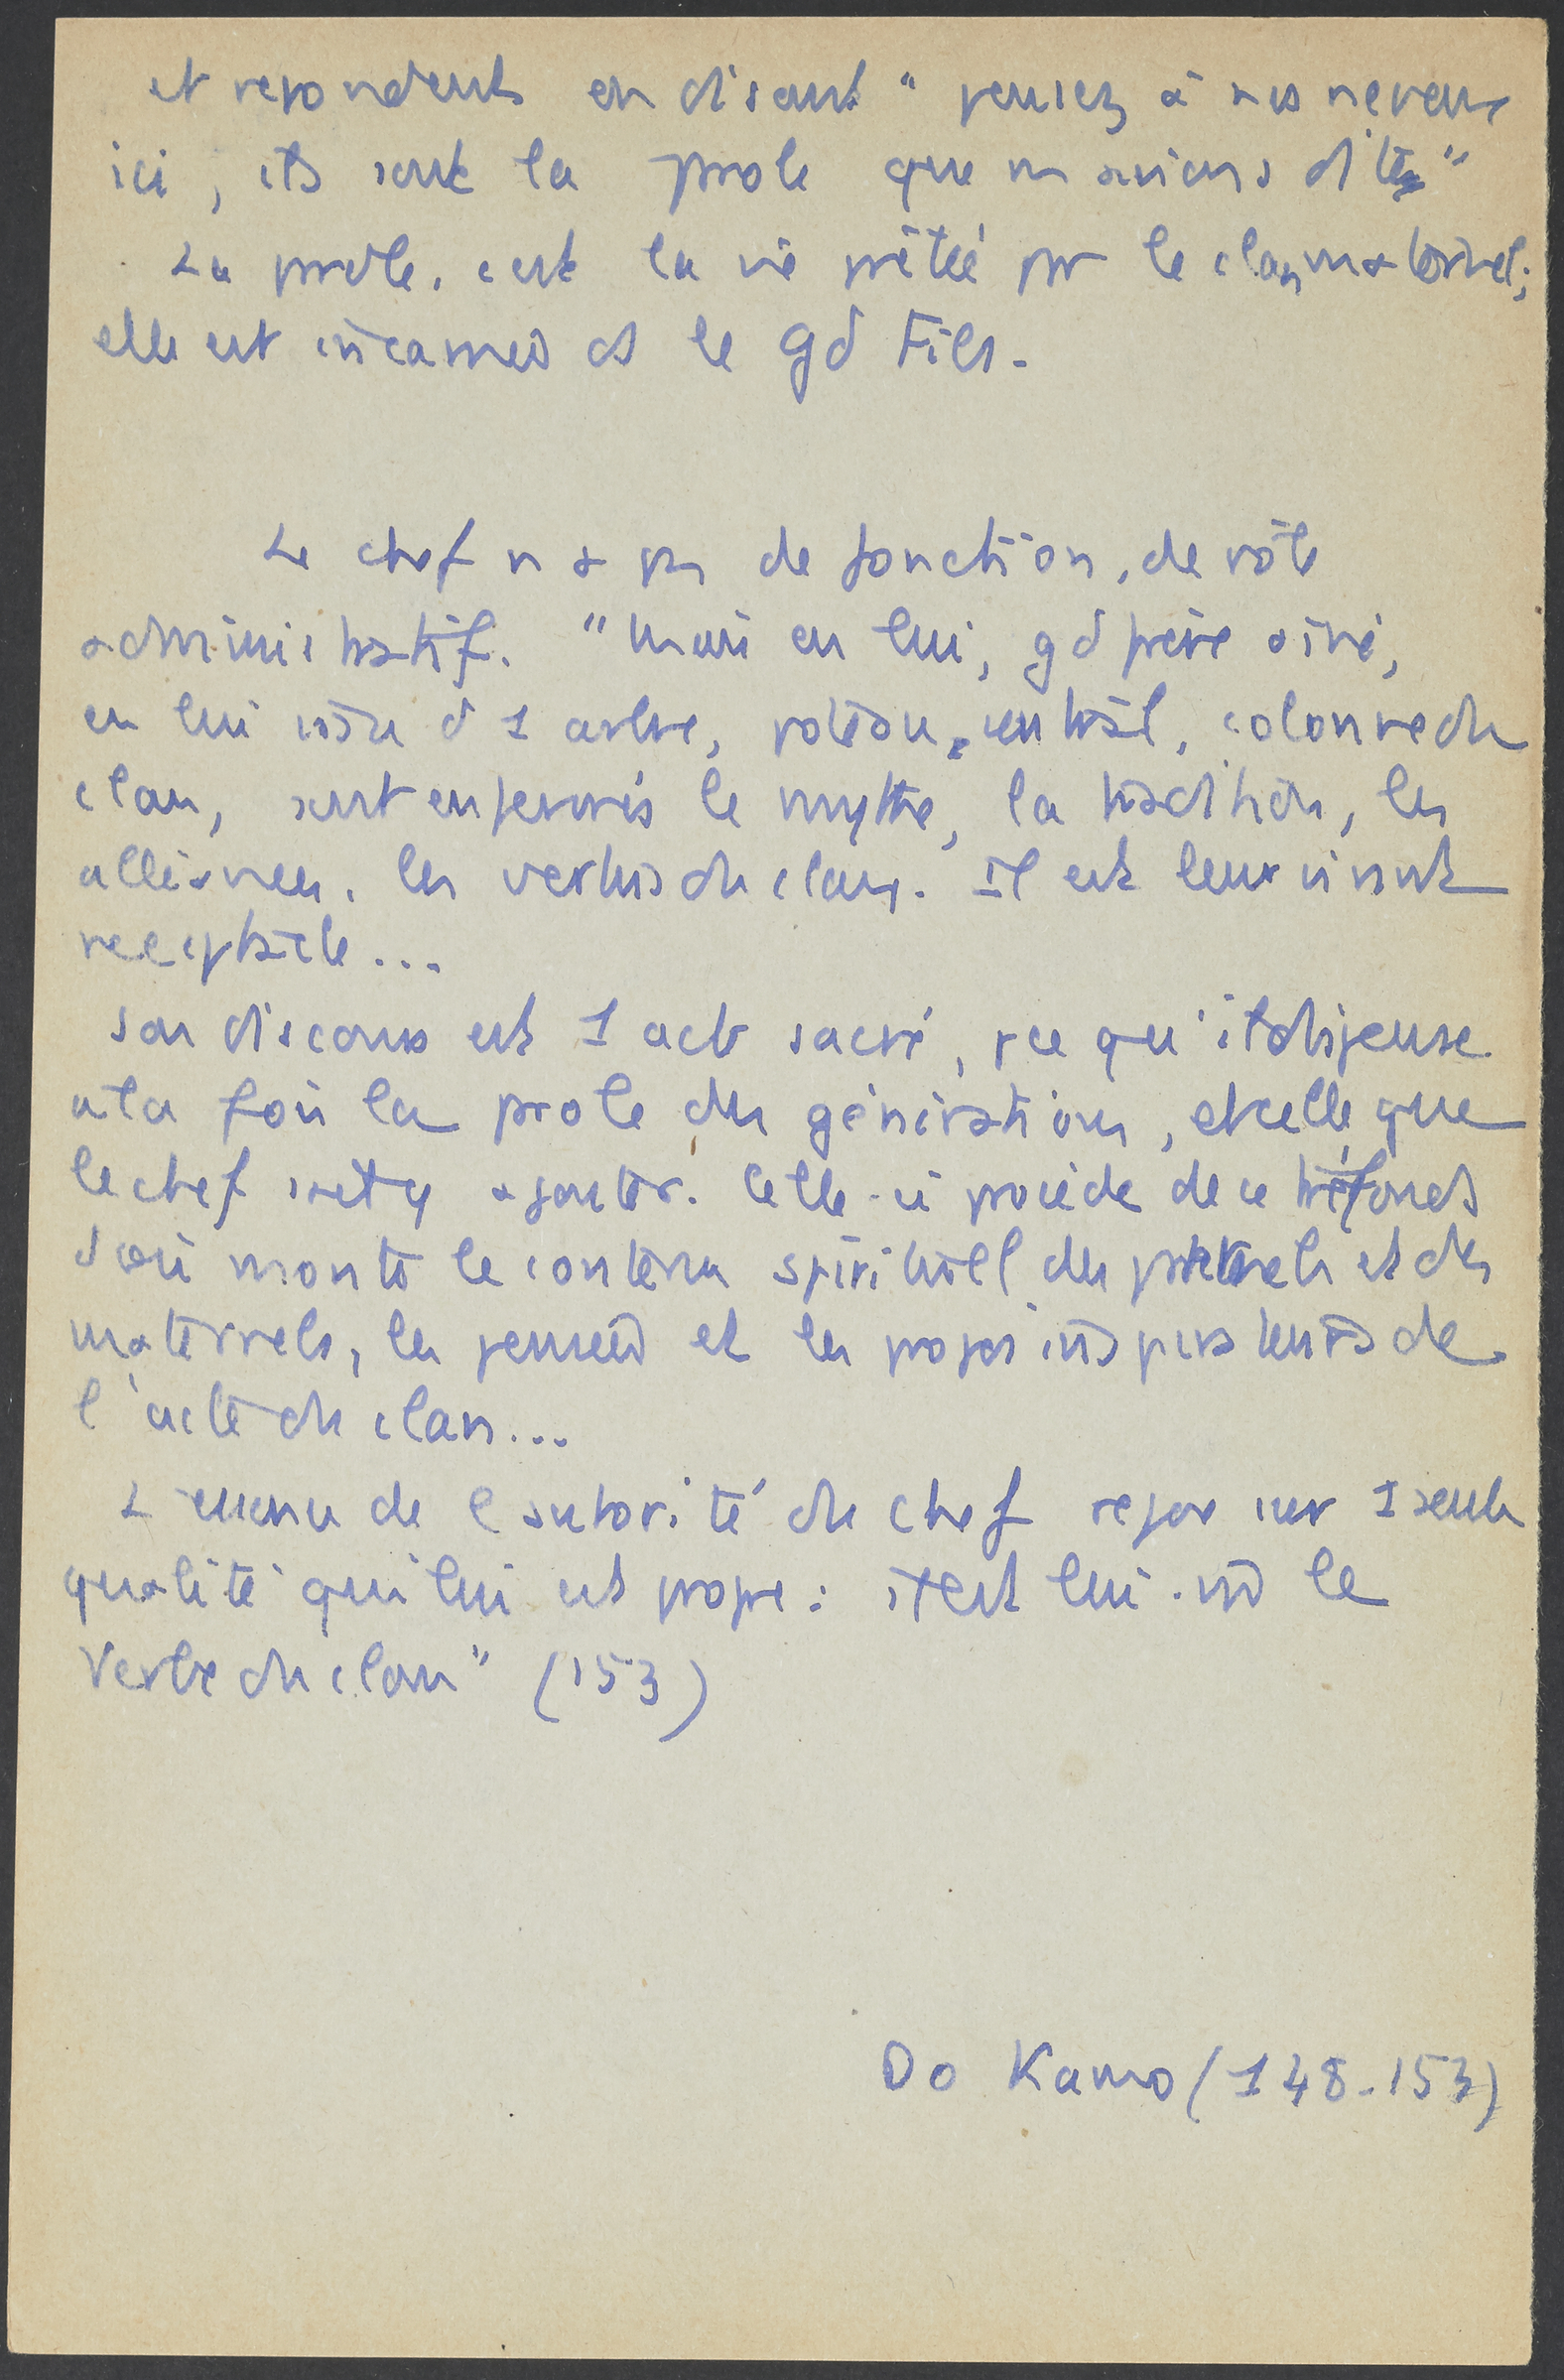 et repondent en disant " pensez à nos neveux
ici, ils sont la prole que ns avions dite "
La prole, c est la vie prêtée pr le clan maternel;
elle est incarnée ds le gd Fils.
Le chef n a pas de fonction, de rôle
administratif. " Mais en lui, gd frère aîné,
en lui issu d 1 arbre, poteau central, colonne du
clan, sont enfermés le mythe, la tradition, les
alliances, les vertus du clan. Il est leur vivant
receptacle...
Son discours est 1 acte sacré, pce qu'il dispense
a la fois la prole des générations, et celle que
le chef sait y ajouter. Celle-ci procède de ce tréfonds
d où monte le contenu spirituel des paternels et des
maternels, les pensées et les propos inspirateurs de
l'acte du clan...
L essence de l autorité du chef repose sur 1 seule
qualité qui lui est propre : il est lui-mê le
Verbe du clan" (153)
Do Kamo (148-153)